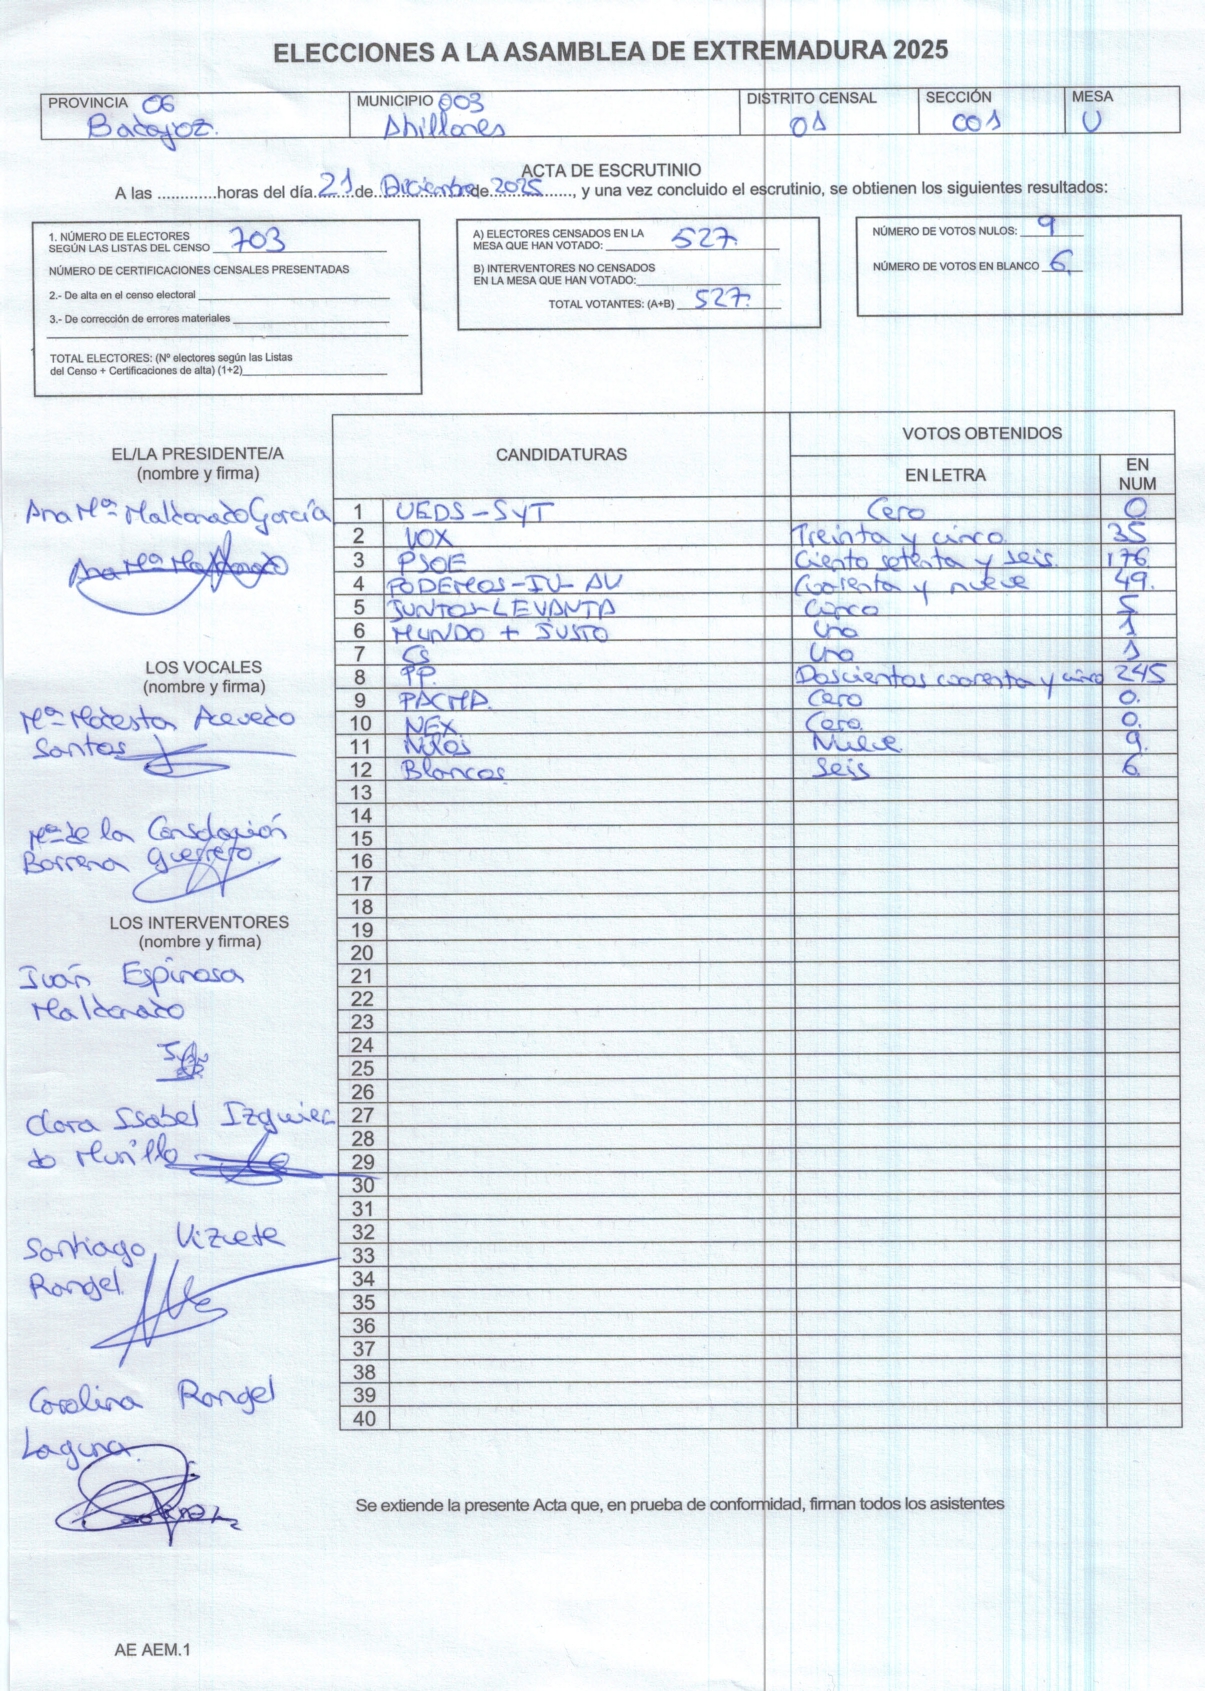 ELECCIONES A LA ASAMBLEA DE EXTREMADURA 2025
PROVINCIA 06
Badajoz.
MUNICIPIO 003
Ahillones
DISTRITO CENSAL
01
SECCIÓN
001
MESA
U
ACTA DE ESCRUTINIO
A las .............horas del día 21 de Diciembre de 2025, y una vez concluido el escrutinio, se obtienen los siguientes resultados:
1. NÚMERO DE ELECTORES
SEGÚN LAS LISTAS DEL CENSO 703
NÚMERO DE CERTIFICACIONES CENSALES PRESENTADAS
2.- De alta en el censo electoral
3.- De corrección de errores materiales
TOTAL ELECTORES: (Nº electores según las Listas
del Censo + Certificaciones de alta) (1+2)
A) ELECTORES CENSADOS EN LA
MESA QUE HAN VOTADO: 527.
B) INTERVENTORES NO CENSADOS
EN LA MESA QUE HAN VOTADO:
TOTAL VOTANTES: (A+B) 527.
NÚMERO DE VOTOS NULOS: 9
NÚMERO DE VOTOS EN BLANCO 6
EL/LA PRESIDENTE/A
(nombre y firma)
Ana Mª Maldonado García
Ana Mª Maldonado
LOS VOCALES
(nombre y firma)
Mª Modesta Acevedo
Santos
Mª de la Consolación
Barrena Guerrero
LOS INTERVENTORES
(nombre y firma)
Iván Espinosa
Maldonado
Clara Isabel Izquier
do Murillo
Santiago Vizuete
Rangel
Carolina Rangel
Laguna
CANDIDATURAS
VOTOS OBTENIDOS
EN LETRA
EN NUM
1 UEDS-SyT Cero 0
2 VOX Treinta y cinco 35
3 PSOE Ciento setenta y seis. 176
4 PODEMOS-IU-AV Cuarenta y nueve 49.
5 JUNTOS-LEVANTA Cinco 5
6 MUNDO + JUSTO Uno 1
7 CS Uno 1
8 PP. Doscientos cuarenta y cinco 245
9 PACMA. Cero 0.
10 NEX. Cero 0.
11 Nulos Nueve 9.
12 Blancos Seis 6
13
14
15
16
17
18
19
20
21
22
23
24
25
26
27
28
29
30
31
32
33
34
35
36
37
38
39
40
Se extiende la presente Acta que, en prueba de conformidad, firman todos los asistentes
AE AEM.1